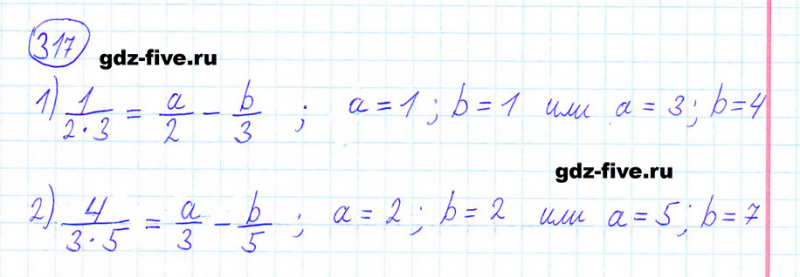 317
gdz-five.ru
1) 1/(2·3) = a/2 − b/3 ; a = 1 ; b = 1 или a = 3 ; b = 4
gdz-five.ru
2) 4/(3·5) = a/3 − b/5 ; a = 2 ; b = 2 или a = 5 ; b = 7